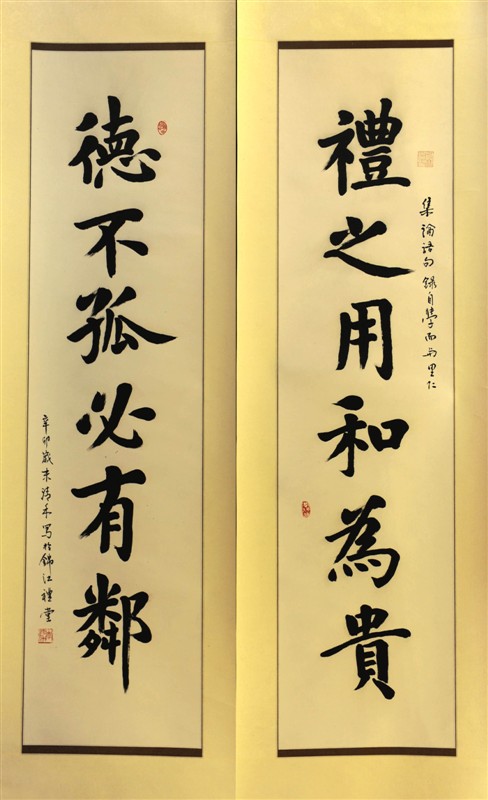 禮之用和為貴
集論語句錄自學而與里仁
德不孤必有鄰
辛卯歲末清禾寫於錦江禮堂